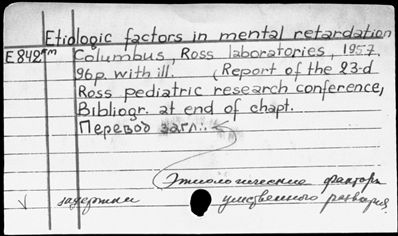 Etiologic factors in mental retardation
E842 Columbus, Ross laboratories, 1957.
96p. with ill. (Report of the 23-d
Ross pediatric research conference,
Bibliogr. at end of chapt.
Перевод загл.:
Этиологические факторы
задержки умственного развития.